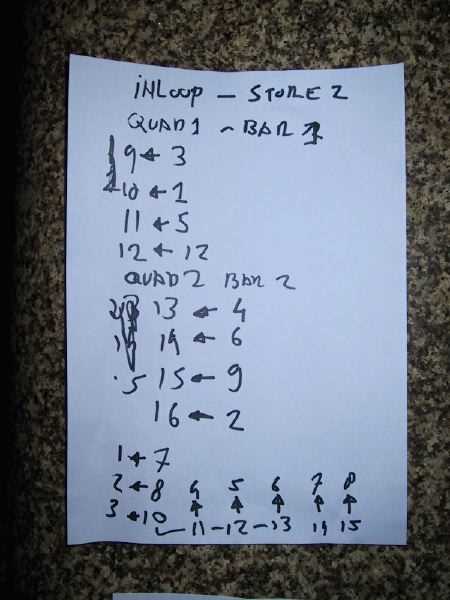 INLOOP - STORE 2
QUAD 1 - BAR 1
9 ← 3
10 ← 1
11 ← 5
12 ← 12
QUAD 2 BAR 2
13 ← 4
14 ← 6
15 ← 9
16 ← 2
1 ← 7
2 ← 8 4 5 6 7 8
3 ← 10 ↑ ↑ ↑ ↑ ↑
11 - 12 - 13 14 15